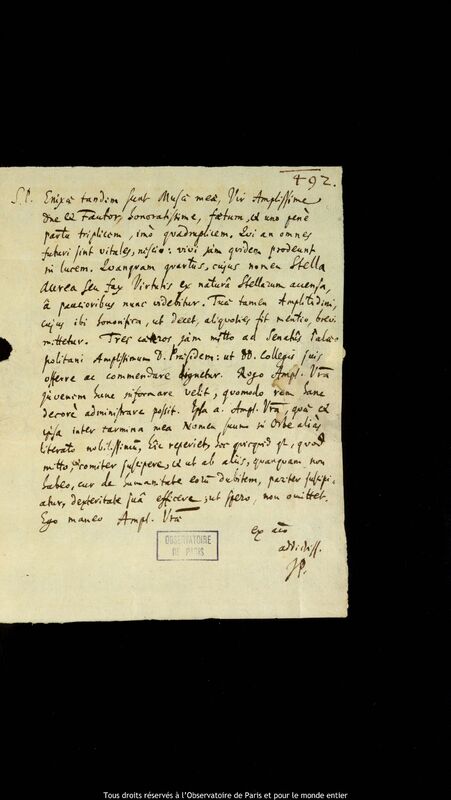 492.
S.P. Enixæ tandem sunt Musæ meæ, Vir Amplissime
Dne et Fautor honoratissime, fœtum, et uno pene
partu triplicem, imò quadruplicem. Qui an omnes
futuri sint vitales, nescio: vivi jam quidem prodeunt
in lucem. Quanquam quartus, cujus nomen Stella
aurea seu fax Virtutis ex naturâ Stellarum accensa,
à paucioribus nunc videbitur. Tuæ tamen Amplitudini,
cujus ibi honorifica, ut decet, aliquoties fit mentio, brevi
mittetur. Tres jam mitto ad Senatûs Palæo
politani Amplissimum D. Præsidem: ut DD. Collegis suis
offerre ac commendare dignetur. Rogo Ampl. Vrã
juvenem hunc informare velit, quomodo rem hanc
decorè administrare possit. Ipsa a. Ampl. Vrã, quæ et
ipsa inter carmina mea Nomen suum in Orbe aliàs
literato nobilissimũ, hîc reperiet, hoc quicquid ẽ, quod
mitto, comiter suscipere, et ut ab aliis, quanquam non
habeo, cur de humanitate eorũ dubitem, pariter suscipi-
atur, dexteritate suâ efficere, ut spero, non omittet.
Ego maneo Ampl. Vrã
ex aĩo
addictiss.
JP.
OBSERVATOIRE
DE PARIS
Tous droits réservés à l'Observatoire de Paris et pour le monde entier